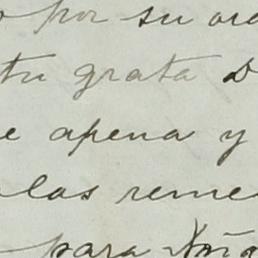 por su
tu grata
e apena y
las reme
para